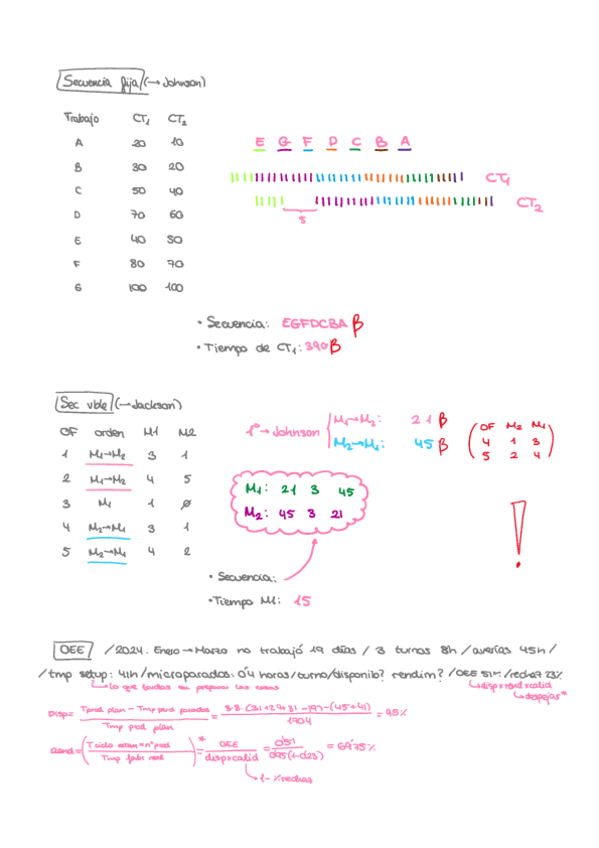 Secuencia fija (→ Johnson)
Trabajo CT1 CT2
A 20 10
B 30 20
C 50 40
D 70 60
E 40 50
F 80 70
G 100 100
E G F D C B A
CT1
CT2
5
• Secuencia: EGFDCBA β
• Tiempo de CT1: 390 β
Sec vble (→ Jackson)
OF orden M1 M2
1 M1→M2 3 1
2 M1→M2 4 5
3 M1 1 ø
4 M2→M1 3 1
5 M2→M1 4 2
1º → Johnson
M1→M2: 21 β
M2→M1: 45 β
OF M2 M1
4 1 3
5 2 4
M1: 21 3 45
M2: 45 3 21
!
• Secuencia:
• Tiempo M1: 15
OEE / 2024. Enero → Marzo no trabajó 19 días / 3 turnos 8h / averías 45h /
/ tmp setup: 41h / microparadas: 0'4 horas/turno / disponib? rendim? / OEE 51% / rechaz 23%
lo que tardas en preparar las cosas
disp×rend×calid
despejas*
Disp = Tprod plan - Tmp perd paradas / Tmp prod. plan = 3·8·(31+29+31-19)-(45+41) / 1704 = 95%
Rend = (T ciclo estan × nº prod / Tmp fabr real) =* OEE / disp×calid = 0'51 / 0'95(1-0'23) = 69'75%
1-%rechaz